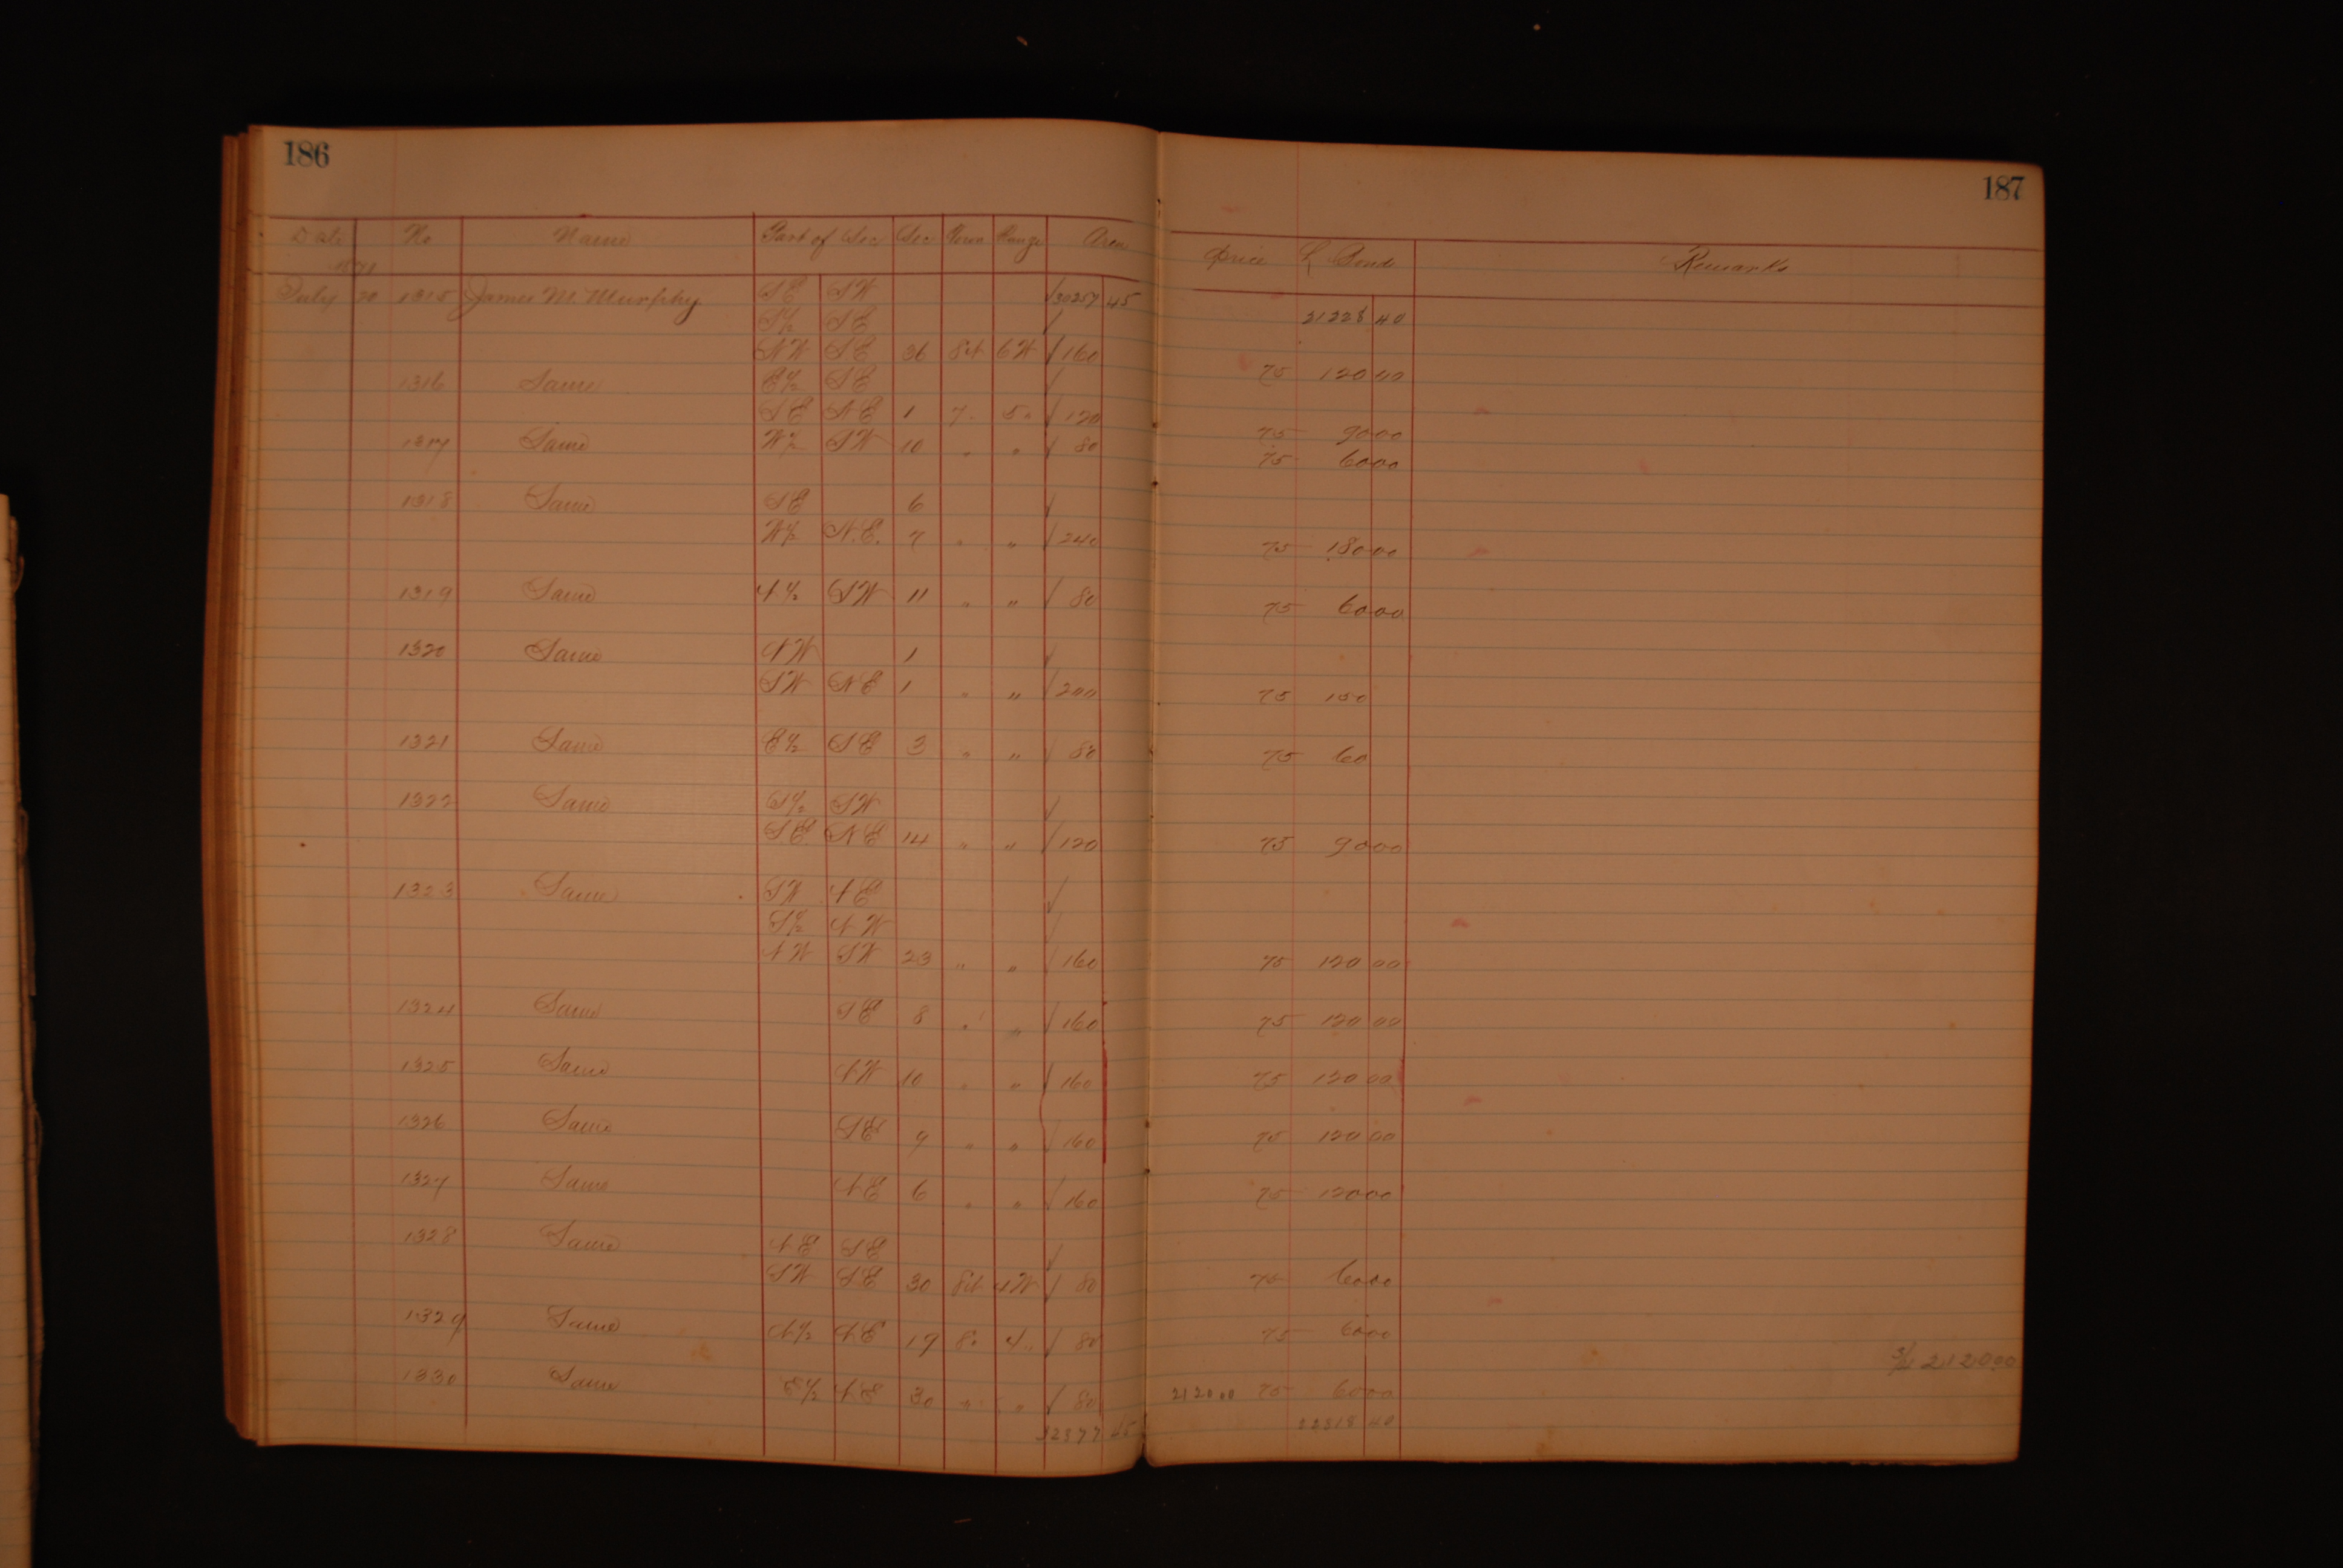 186
187
Date No Name Part of Sec Sec Town Range Area Price L Bond Remarks
1871
July 20 1315 James M. Murphy SE SW 30257 45 21228 40
S½ SE
NW SE 36 8N 6W 160 75 120 00
1316 Same E½ SE
SE NE 1 7 " 5 " 120 75 90 00
1317 Same W½ SW 10 " " 80 75 60 00
1318 Same SE 6
W½ N.E. 7 " " 240 75 180 00
1319 Same N½ SW 11 " " 80 75 60 00
1320 Same NW 1
SW NE 1 " " 200 75 150
1321 Same E½ SE 3 " " 80 75 60
1322 Same S½ SW
SE NE 14 " " 120 75 90 00
1323 Same SW NE
S½ NW
NW SW 23 " " 160 75 120 00
1324 Same SE 8 " " 160 75 120 00
1325 Same NW 10 " " 160 75 120 00
1326 Same SE 9 " " 160 75 120 00
1327 Same NE 6 " " 160 75 120 00
1328 Same NE SE
SW SE 30 8N 4W 80 75 60 00
1329 Same N½ NE 19 8 " 4 " 80 75 60 00
212000
1330 Same E½ NE 30 " " 80 212000 75 60 00
32377 45 22818 40